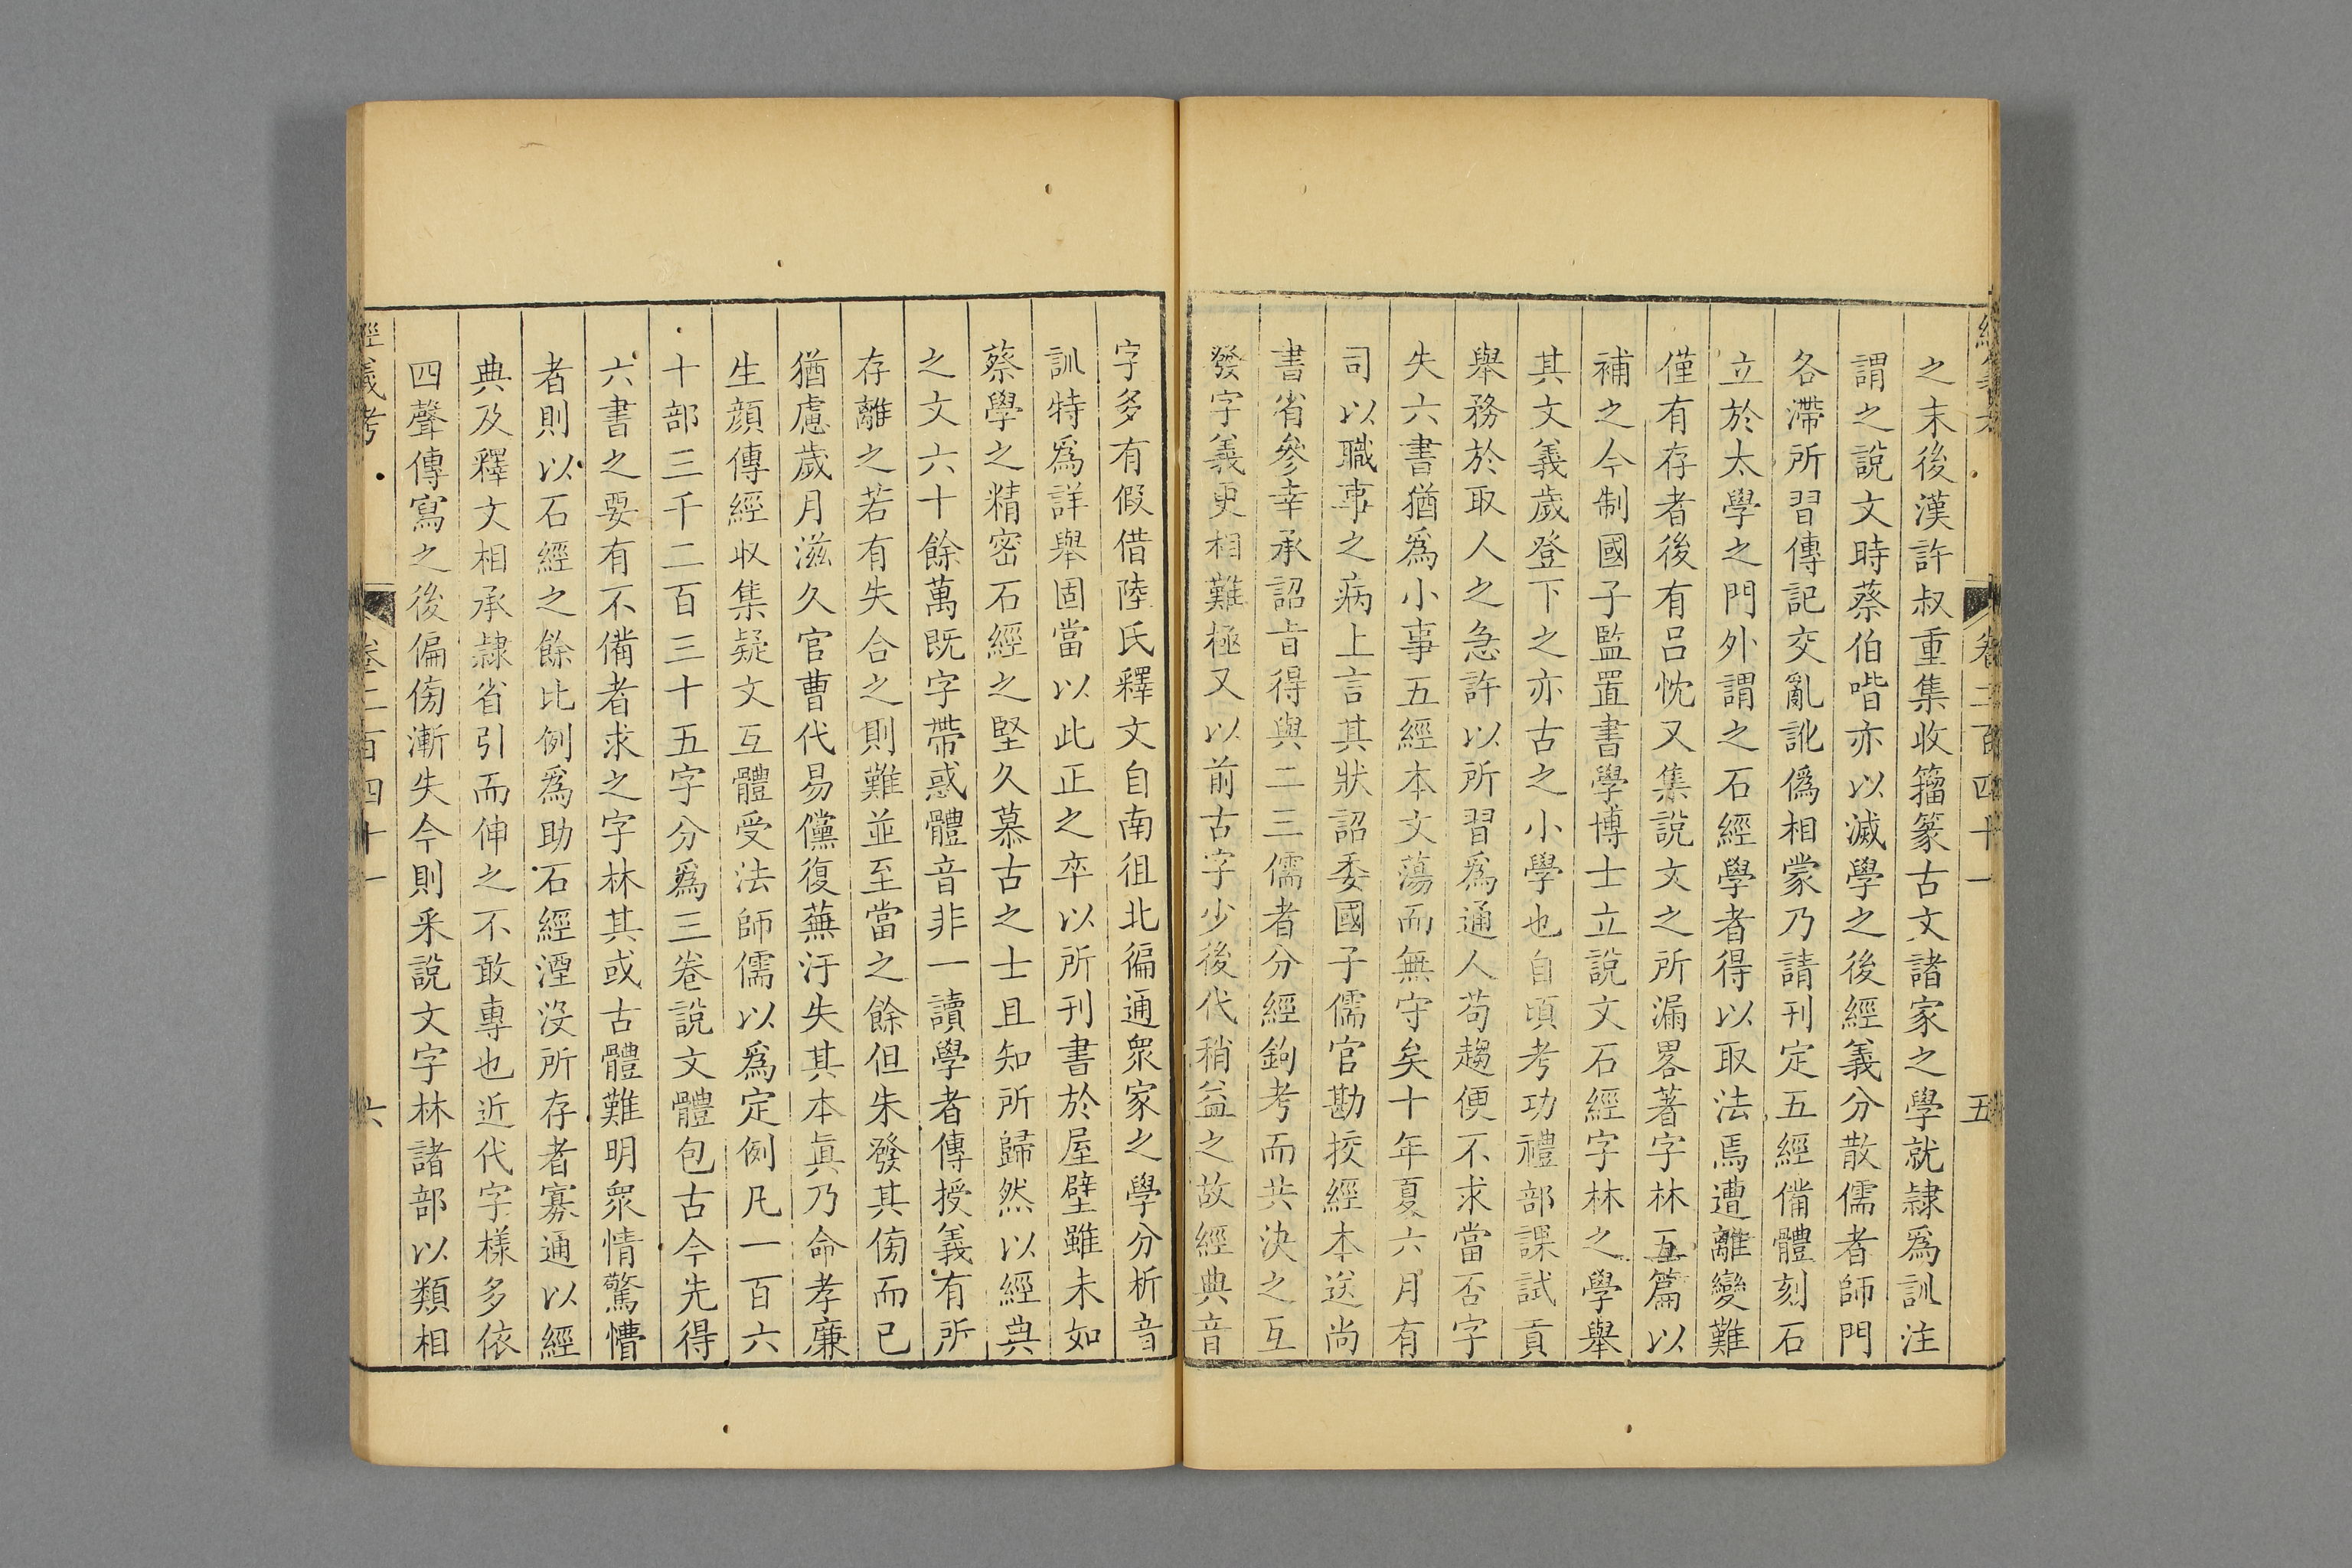 經義考
卷二百四十一
五
之末後漢許叔重集收籀篆古文諸家之學就隸爲訓注
謂之說文時蔡伯喈亦以滅學之後經義分散儒者師門
各滯所習傳記交亂訛僞相蒙乃請刊定五經備體刻石
立於太學之門外謂之石經學者得以取法焉遭離變難
僅有存者後有呂忱又集說文之所漏畧著字林五篇以
補之今制國子監置書學博士立說文石經字林之學舉
其文義歲登下之亦古之小學也自頃考功禮部課試貢
舉務於取人之急許以所習爲通人苟趨便不求當否字
失六書猶爲小事五經本文蕩而無守矣十年夏六月有
司以職事之病上言其狀詔委國子儒官勘挍經本送尚
書省參幸承詔㫖得與二三儒者分經鉤考而共決之互
發字義更相難極又以前古字少後代稍益之故經典音
字多有假借陸氏釋文自南徂北徧通衆家之學分析音
訓特爲詳舉固當以此正之卒以所刊書於屋壁雖未如
蔡學之精密石經之堅久慕古之士且知所歸然以經典
之文六十餘萬旣字帶惑體音非一讀學者傳授義有所
存離之若有失合之則難並至當之餘但朱發其傍而已
猶慮歲月滋久官曹代易儻復蕪汙失其本眞乃命孝廉
生顏傳經收集疑文互體受法師儒以爲定例凡一百六
十部三千二百三十五字分爲三卷說文體包古今先得
六書之要有不備者求之字林其或古體難明衆情驚懵
者則以石經之餘比例爲助石經湮没所存者寡通以經
典及釋文相承隸省引而伸之不敢專也近代字樣多依
四聲傳寫之後偏傍漸失今則采說文字林諸部以類相
經義考
卷二百四十一
六